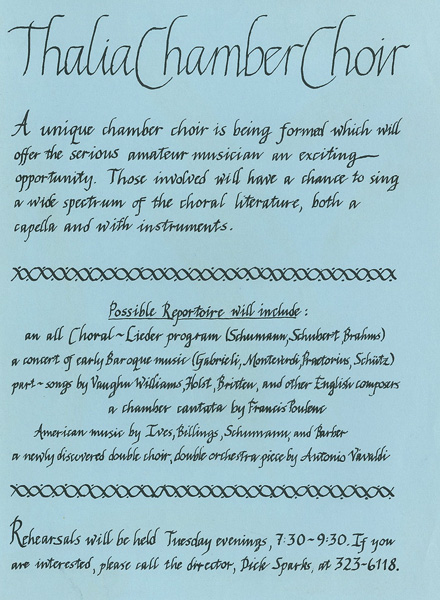 Thalia Chamber Choir
A unique chamber choir is being formed which will
offer the serious amateur musician an exciting
opportunity. Those involved will have a chance to sing
a wide spectrum of the choral literature, both a
capella and with instruments.
Possible Repertoire will include:
an all Choral~Lieder program (Schumann, Schubert, Brahms)
a concert of early Baroque music (Gabrieli, Monteverdi, Praetorius, Schütz)
part~songs by Vaughn Williams, Holst, Britten, and other English composers
a chamber cantata by Francis Poulenc
American music by Ives, Billings, Schumann, and Barber
a newly discovered double choir, double orchestra piece by Antonio Vavaldi
Rehearsals will be held Tuesday evenings, 7:30~9:30. If you
are interested, please call the director, Dick Sparks, at 323-6118.